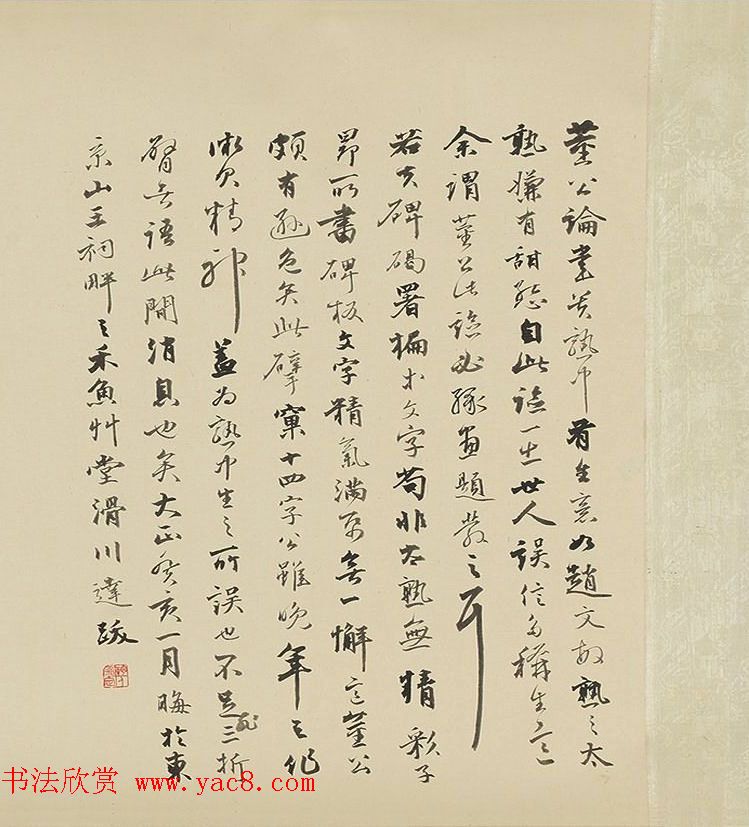 董公論書貴熟中有生意如趙文敏熟之太
熟嫌有甜態自此論一出世人誤信多稱生意
余謂董公此論必緣畫題發之耳
若夫碑碣署榜本文字苟非太熟無精彩子
昂所書碑板文字精氣滿而無一懈意董公
頗有遜色矣此擘窠十四字公雖晚年之作
微欠精神蓋為熟中生之所誤也不足三折
臂無語此間消息也矣大正癸亥一月晦於東
京山王祠畔之禾魚艸堂滑川達跋
书法欣赏 www.yac8.com